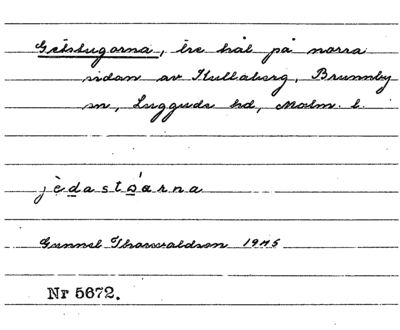 Getstugorna, tre hål på norra
sidan av Kullaberg, Brunnby
sn, Luggude hd, Malm. l.
Gunnel Thorwaldson 1945
Nr 5672.